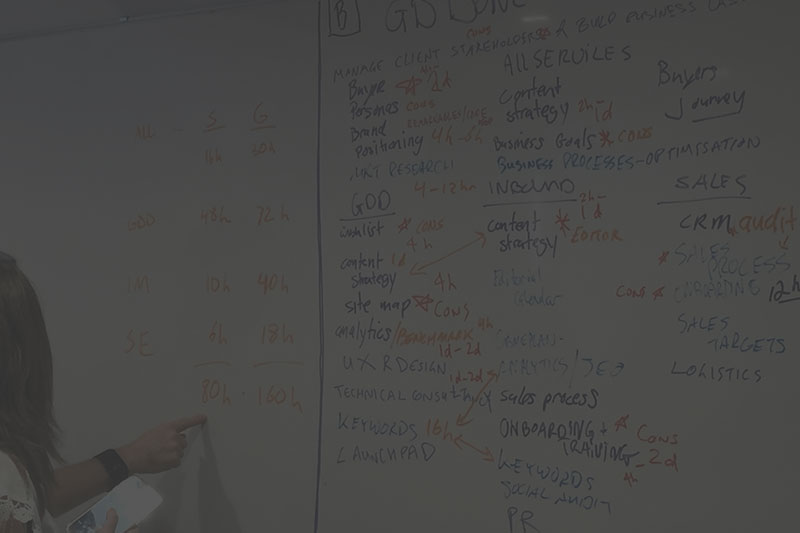 S G
ALL - 16h 30h
GDD 48h 72h
IM 10h 40h
SE 6h 18h
80h . 160h
B
MANAGE CLIENT STAKEHOLDERS & BUILD BUSINESS
CONS
ALL SERVICES
Buyer
Personas CONS
Brand
Positioning 4h-6h
MKT RESEARCH
4-12h
Content
strategy 2h-1d
Business Goals * CONS
BUSINESS PROCESSES-OPTIMISATION
Buyers
Journey
GDD
wishlist * CONS
4h
content 1d
strategy 4h
site map * CONS
analytics/BENCHMARK 4h
1d-2d
UX R DESIGN
1d-2d
TECHNICAL
KEYWORDS 16h
LAUNCHPAD
INBOUND
2h-
1d
content *
strategy EDITOR
Editorial
Calendar
ANALYTICS/SEO
sales process
ONBOARDING + * CONS
TRAINING - 2d
KEYWORDS
4h
SOCIAL AUDIT
PR
SALES
CRM audit
* SALES
PROCESS
CONS * ONBOARDING 12h
SALES
TARGETS
LOGISTICS